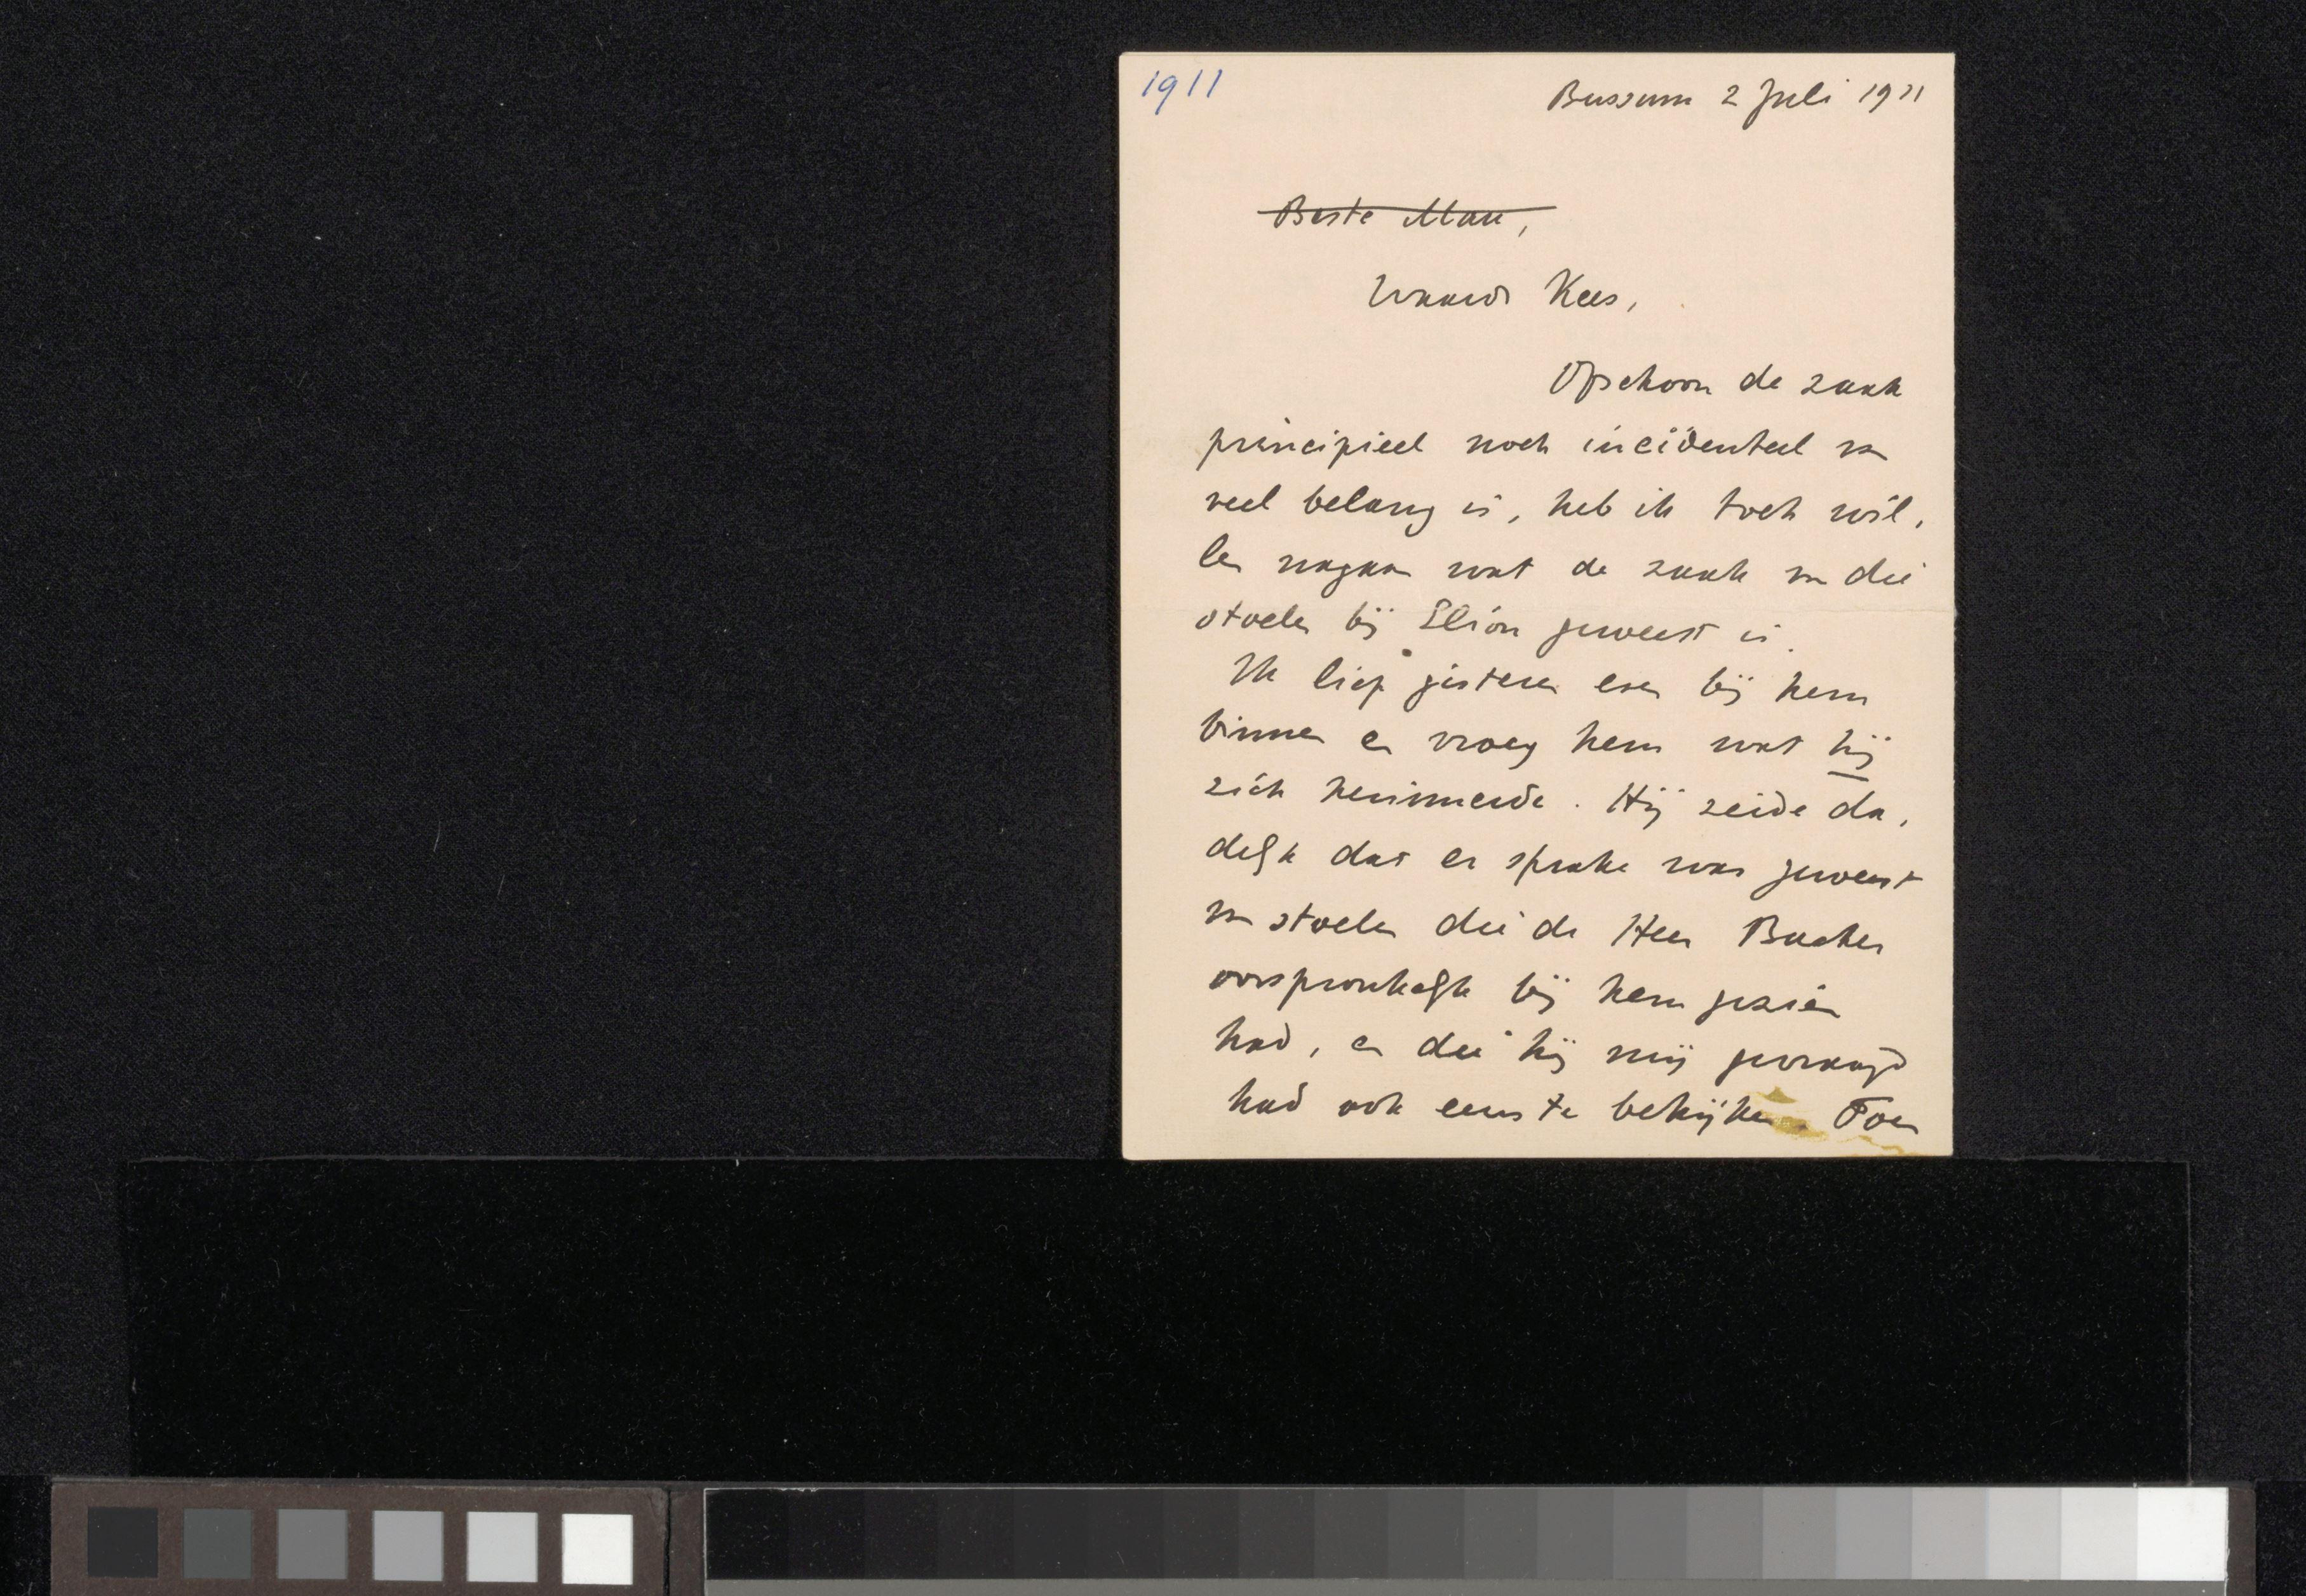 1911
Bussum 2 Juli 1911
Beste Man,
Waarde Kees,
Ofschoon de zaak
principieel noch incidenteel van
veel belang is, heb ik toch wil,
len nagaan wat de zaak van die
stoelen bij Elion geweest is.
Ik liep gisteren even bij hem
binnen en vroeg hem wat hij
zich herinnerde. Hij zeide da,
delijk dat er sprake was geweest
van stoelen die de Heer Bacher
oorspronkelijk bij hem gezien
had, en die hij mij gevraagd
had ook eens te bekijken. Toen